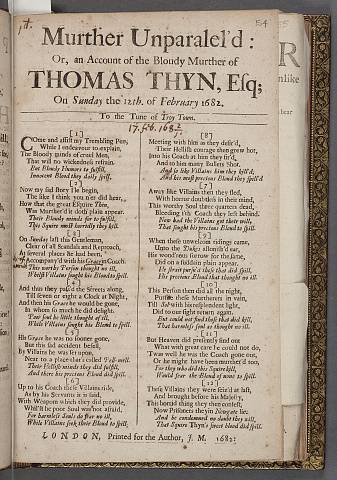 54
Murther Unparalel'd:
Or, an Account of the Bloudy Murther of
THOMAS THYN, Esq;
On Sunday the 12th. of February 1682.
To the Tune of Troy Town.
17. feb. 1682/
[1]
COme and assist my Trembling Pen,
While I endeavour to explain,
The Bloudy minds of cruel Men,
That will no wickedness refrain.
But Bloudy humors to fulfill,
Innocent Blood they daily spill.
[2]
Now my sad Story I'le begin,
The like I think you n'er did hear,
How that great Esquire Thin,
Was Murther'd it doth plain appear.
Their Bloudy minds for to fulfill,
This Squire most horridly they kill.
[3]
On Sunday last this Gentleman,
Clear of all Scandals and Reproach,
At several places he had been,
Accompany'd with his Grace in Coach.
This worthy Person thought no ill,
Whilst Villains sought his Blood to spill.
[4]
And thus they pass'd the Streets along,
Till seven or eight a Clock at Night,
And then his Grace he would be gone,
In whom so much he did delight.
Poor soul he little thought of ill,
While Villains sought his Bloud to spill.
[5]
His Grace he was no sooner gone,
But this sad accident befell,
By Villains he was set upon,
Near to a place that's called Pell-mell.
Their Hellish minds they did fulfill,
And there his precious Blood did spill.
[6]
Up to his Coach these Villains ride,
As by his Servants it is said,
With Weapons which they did provide,
Whilst he poor Soul was not afraid,
For harmless Souls do fear no ill,
While Villains seek their Blood to spill.
[8]
Meeting with him as they desir'd,
Their Hellish courage then grew hot,
Into his Coach at him they fir'd,
And so him many Bullets shot.
And so like Villains him they kill'd
And his most precious Blood they spill'd
[7]
Away like Villains then they fled,
With horror doubtless in their mind,
This worthy Soul three quarters dead,
Bleeding i'th' Coach they left behind.
Now had the Villains got their will,
That sought his precious Blood to spill.
[9]
When these unwelcom tidings came,
Unto the Dukes astonish'd ear,
His wond'rous sorrow for the same,
Did on a sudden plain appear.
[10]
This Person then did all the night,
Pursue these Murtherers in vain,
Till Sol with his resplendent light,
Did to our sight return again.
But could not find those that did kill,
That harmless soul as thought no ill.
[11]
But Heaven did presently find out
What with great care he could not do,
'Twas well he was the Coach gone out,
Or he might have been murther'd too,
For they who did this Squire kill,
Would fear the Blood of none to spill.
[12]
These Villains they were seiz'd at last,
And brought before his Majesty,
This horrid thing they then confest;
Now Prisoners they in Newgate lie:
And be condemned no doubt they will,
That Squire Thyn's sweet blood did spill.
LONDON, Printed for the Author, J. M. 1682: